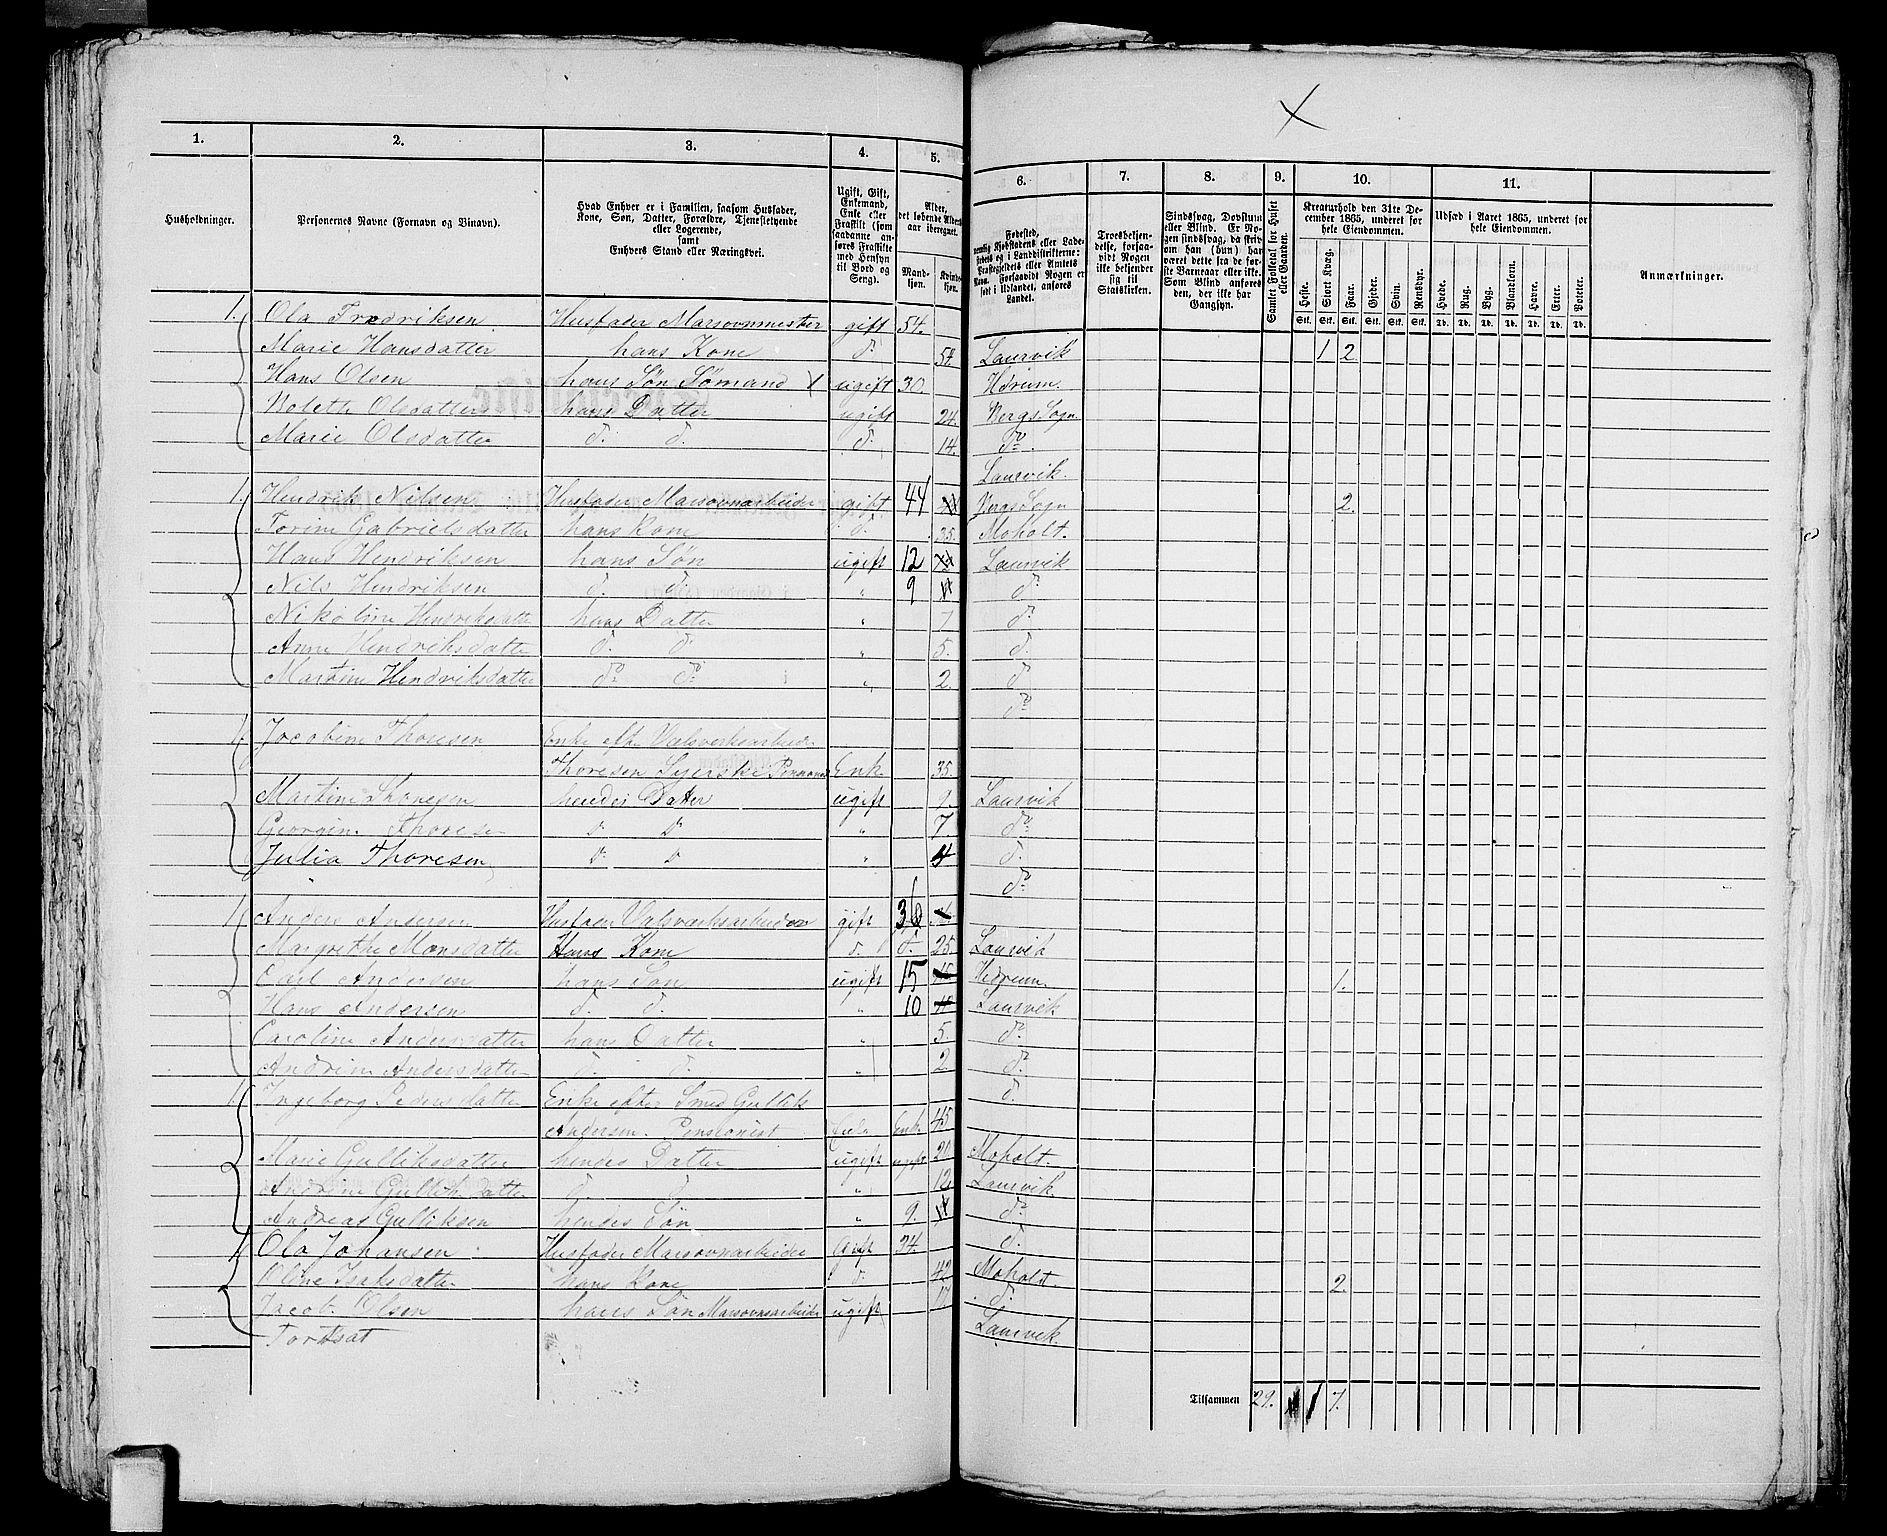 1. 2. 3. 4. 5. 6. 7. 8. 9. 10. 11.
Husholdninger.
Personernes Navne (Fornavn og Binavn).
Hvad Enhver er i Familien, saasom Husfader,
Kone, Søn, Datter, Forældre, Tjenestetyende
eller Logerende,
samt
Enhvers Stand eller Næringsvei.
Ugift, Gift,
Enkemand,
Enke eller
Fraskilt (som
saadanne an-
føres Fraskilte
med Hensyn
til Bord og
Seng).
Alder,
det løbende Alders-
aar iberegnet.
Mand-
kjøn.
Kvinde-
kjøn.
Fødested,
nemlig Kjøbstadens eller Lade-
stedets og i Landdistrikterne:
Præstegjeldets eller Amtets
Navn. Forsaavidt Nogen er
født i Udlandet, anføres
Landet.
Troesbekjen-
delse, forsaa-
vidt Nogen
ikke bekjender
sig til
Statskirken.
Sindssvag, Døvstum
eller Blind. Er No-
gen sindssvag, da skriv
om han (hun) har
været dette fra de før-
ste Barneaar eller ikke.
Som Blind anføres
den, der ikke har
Gangsyn.
Samlet Folketal for Huset
eller Gaarden.
Kreaturhold den 31te De-
cember 1865, underet for
hele Eiendommen.
Heste. Stort Kvæg. Faar. Gjeder. Svin. Rensdyr.
Stk. Stk. Stk. Stk. Stk. Stk.
Udsæd i Aaret 1865, underet for
hele Eiendommen.
Hvede. Rug. Byg. Blandkorn. Havre. Erter. Poteter.
Td. Td. Td. Td. Td. Td. Td.
Anmærkninger.
1. Ola Fredriksen Husfader Marsovnmester gift 54.
Marie Hansdatter hans Kone d. 54. Laurvik 1 2
Hans Olsen hans Søn Sømand ugift 30. Hdrum
Bolette Olsdatter hans Datter ugift 24. Bergs Sogn
Marie Olsdatter d. d. d. 14. do
Laurvik.
1. Hendrik Nilsen Husfader Marsovnarbeider gift 44 Bergs Sogn 2.
Torine Gabrielsdatter hans Kone d. 35. Moholt.
Hans Hendriksen hans Søn ugift 12 Laurvik
Nils Hendriksen d. d. " 9 d.
Nikoline Hendriksdatter hans Datter " 7 d.
Anne Hendriksdatter d. d. " 5. d.
Martine Hendriksdatter do do " 2. d
do
1. Jocobine Thoresen Enke efter Valsverksarbeider
Thoresen Pensionist Enke 35.
Martine Thoresen hendes Datter ugift 9. Laurvik
Georgine Thoresen d d " 7. do
Julia Thoresen d. d " 4 d.
do
1. Anders Andersen Husfader Valsværksarbeider gift 36
Margrethe Monsdatter Hans Kone d. d. 25. Laurvik
Carl Andersen hans Søn ugift 15 Hedrum 1.
Hans Andersen d. d. " 10 Laurvik
Caroline Andersdatter hans Datter " 5. do
Andrine Andersdatter d. d. " 2 do
1. Ingeborg Pedersdatter Enke efter Smed Gullik d.
Andersen. Pensionist Enke Enk. 45
Marie Gulliksdatter hendes Datter ugift ugift 20 Moholt.
Andrine Gulliksdatter d. d. " 12 Laurvik
Andreas Gulliksen hendes Søn " 9. do
1. Ola Johansen Husfader Marsovnarbeider Gift 34. d.
Oline Isaksdatter hans Kone d. 42 Moholt. 2.
Jacob Olsen hans Søn Marsovnsarbeider ugift 17 d.
Fortsat Laurvik
Tilsammen 29. 1 7.